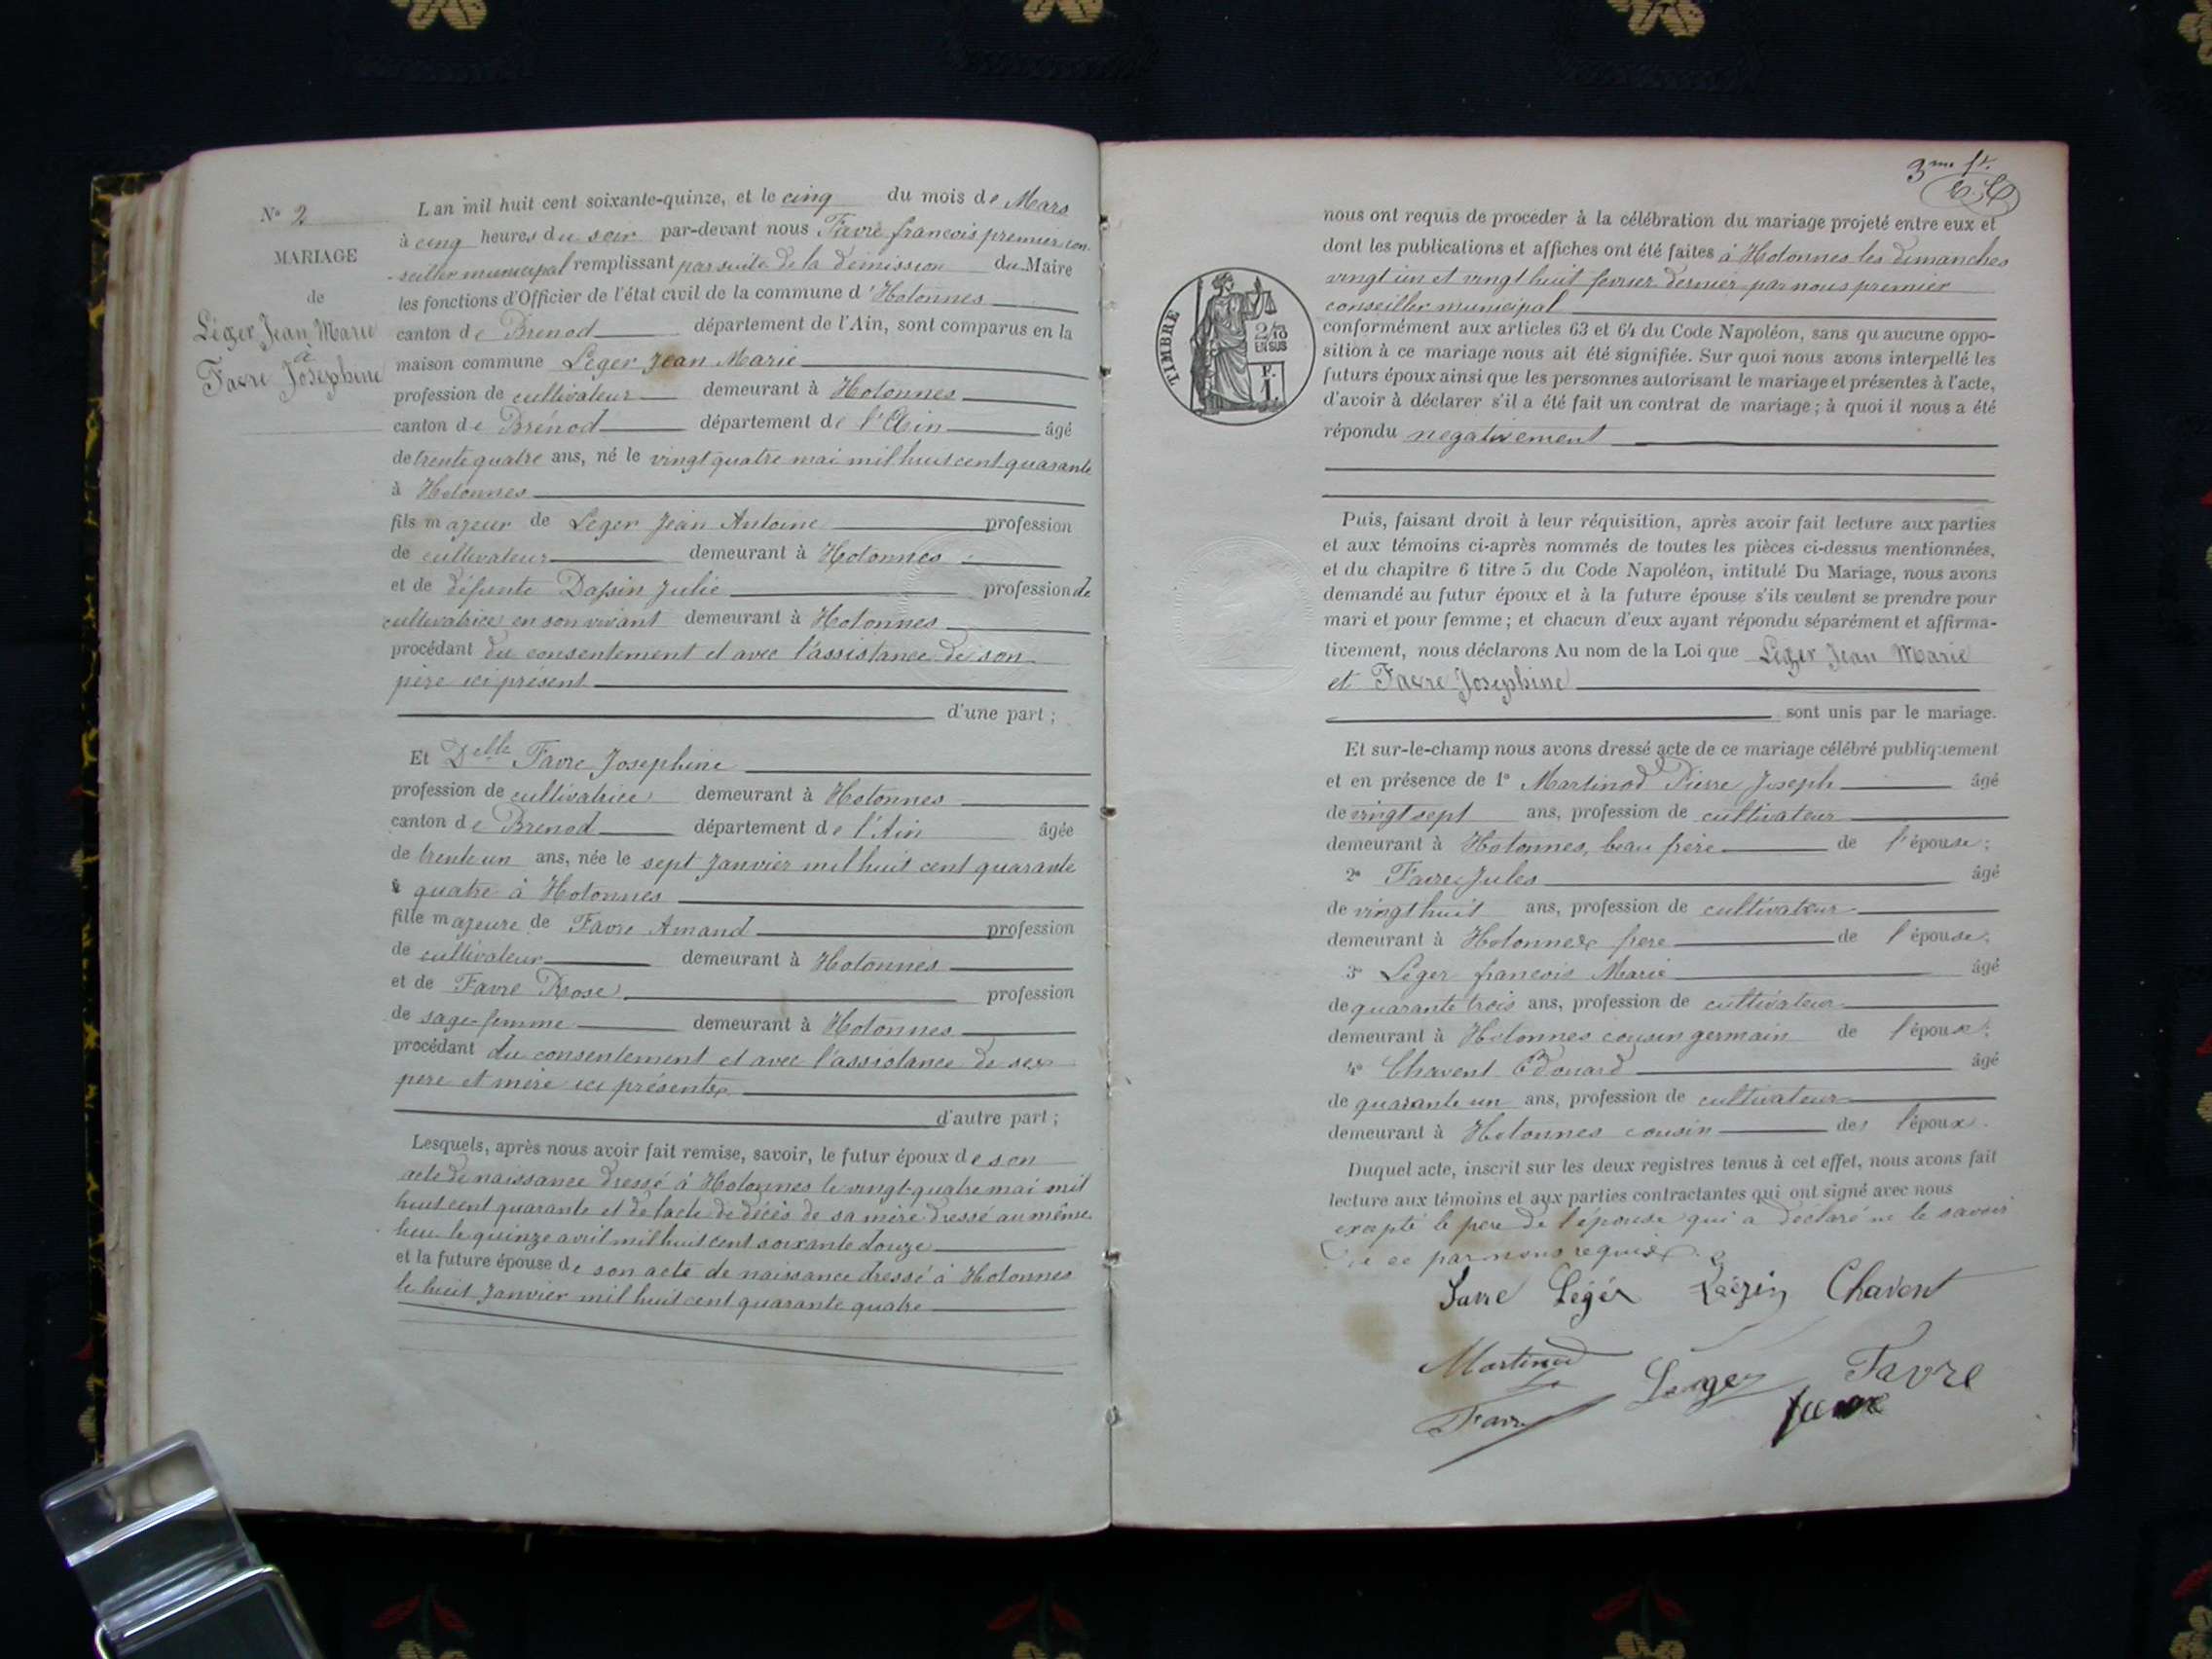 No 2
MARIAGE
de
Léger Jean Marie
à
Favre Josephine
L'an mil huit cent soixante-quinze, et le cinq du mois de Mars
à cinq heures du soir par-devant nous Favre françois premier con-
-seiller municipal remplissant par suite de la démission du Maire
les fonctions d'Officier de l'état civil de la commune d'Hotonnes
canton de Brenod département de l'Ain, sont comparus en la
maison commune Léger Jean Marie
profession de cultivateur demeurant à Hotonnes
canton de Brénod département de l'Ain âgé
de trente quatre ans, né le vingt quatre mai mil huit cent quarante
à Hotonnes
fils majeur de Leger Jean Antoine profession
de cultivateur demeurant à Hotonnes
et de défunte Dassin Julie profession de
cultivatrice en son vivant demeurant à Hotonnes
procédant du consentement et avec l'assistance de son
père ici présent
d'une part ;
Et Delle Favre Josephine
profession de cultivatrice demeurant à Hotonnes
canton de Brenod département de l'Ain âgée
de trente un ans, née le sept Janvier mil huit cent quarante
quatre à Hotonnes
fille majeure de Favre Amand profession
de cultivateur demeurant à Hotonnes
et de Favre Rose profession
de sage-femme demeurant à Hotonnes
procédant du consentement et avec l'assistance de ses
pere et mère ici présents
d'autre part ;
Lesquels, après nous avoir fait remise, savoir, le futur époux de son
acte de naissance dressé à Hotonnes le vingt-quatre mai mil
huit cent quarante et de l'acte de décès de sa mère dressé au même
lieu le quinze avril mil huit cent soixante douze
et la future épouse de son acte de naissance dressé à Hotonnes
le huit Janvier mil huit cent quarante quatre
3me ft.
nous ont requis de procéder à la célébration du mariage projeté entre eux et
dont les publications et affiches ont été faites à Hotonnes les dimanches
vingt un et vingt huit fevrier dernier par nous premier
conseiller municipal
TIMBRE
2/10
EN SUS
F.
1.
conformément aux articles 63 et 64 du Code Napoléon, sans qu'aucune oppo-
sition à ce mariage nous ait été signifiée. Sur quoi nous avons interpellé les
futurs époux ainsi que les personnes autorisant le mariage et présentes à l'acte,
d'avoir à déclarer s'il a été fait un contrat de mariage ; à quoi il nous a été
répondu negativement
Puis, faisant droit à leur réquisition, après avoir fait lecture aux parties
et aux témoins ci-après nommés de toutes les pièces ci-dessus mentionnées,
et du chapitre 6 titre 5 du Code Napoléon, intitulé Du Mariage, nous avons
demandé au futur époux et à la future épouse s'ils veulent se prendre pour
mari et pour femme ; et chacun d'eux ayant répondu séparément et affirma-
tivement, nous déclarons Au nom de la Loi que Léger Jean Marie
et Favre Josephine
sont unis par le mariage.
Et sur-le-champ nous avons dressé acte de ce mariage célébré publiquement
et en présence de 1° Martinod Pierre Joseph âgé
de vingt sept ans, profession de cultivateur
demeurant à Hotonnes, beau frère de l'épouse ;
2° Favre Jules âgé
de vingt huit ans, profession de cultivateur
demeurant à Hotonnes frere de l'épouse ;
3° Léger françois Marie âgé
de quarante trois ans, profession de cultivateur
demeurant à Hotonnes cousin germain de l'époux ;
4° Chavent Edouard âgé
de quarante un ans, profession de cultivateur
demeurant à Hotonnes cousin de l'époux.
Duquel acte, inscrit sur les deux registres tenus à cet effet, nous avons fait
lecture aux témoins et aux parties contractantes qui ont signé avec nous
excepté le pere de l'épouse qui a déclaré ne le savoir
de ce par nous requis.
Favre Légér Chavent
Martinod Leger Favre
Favre